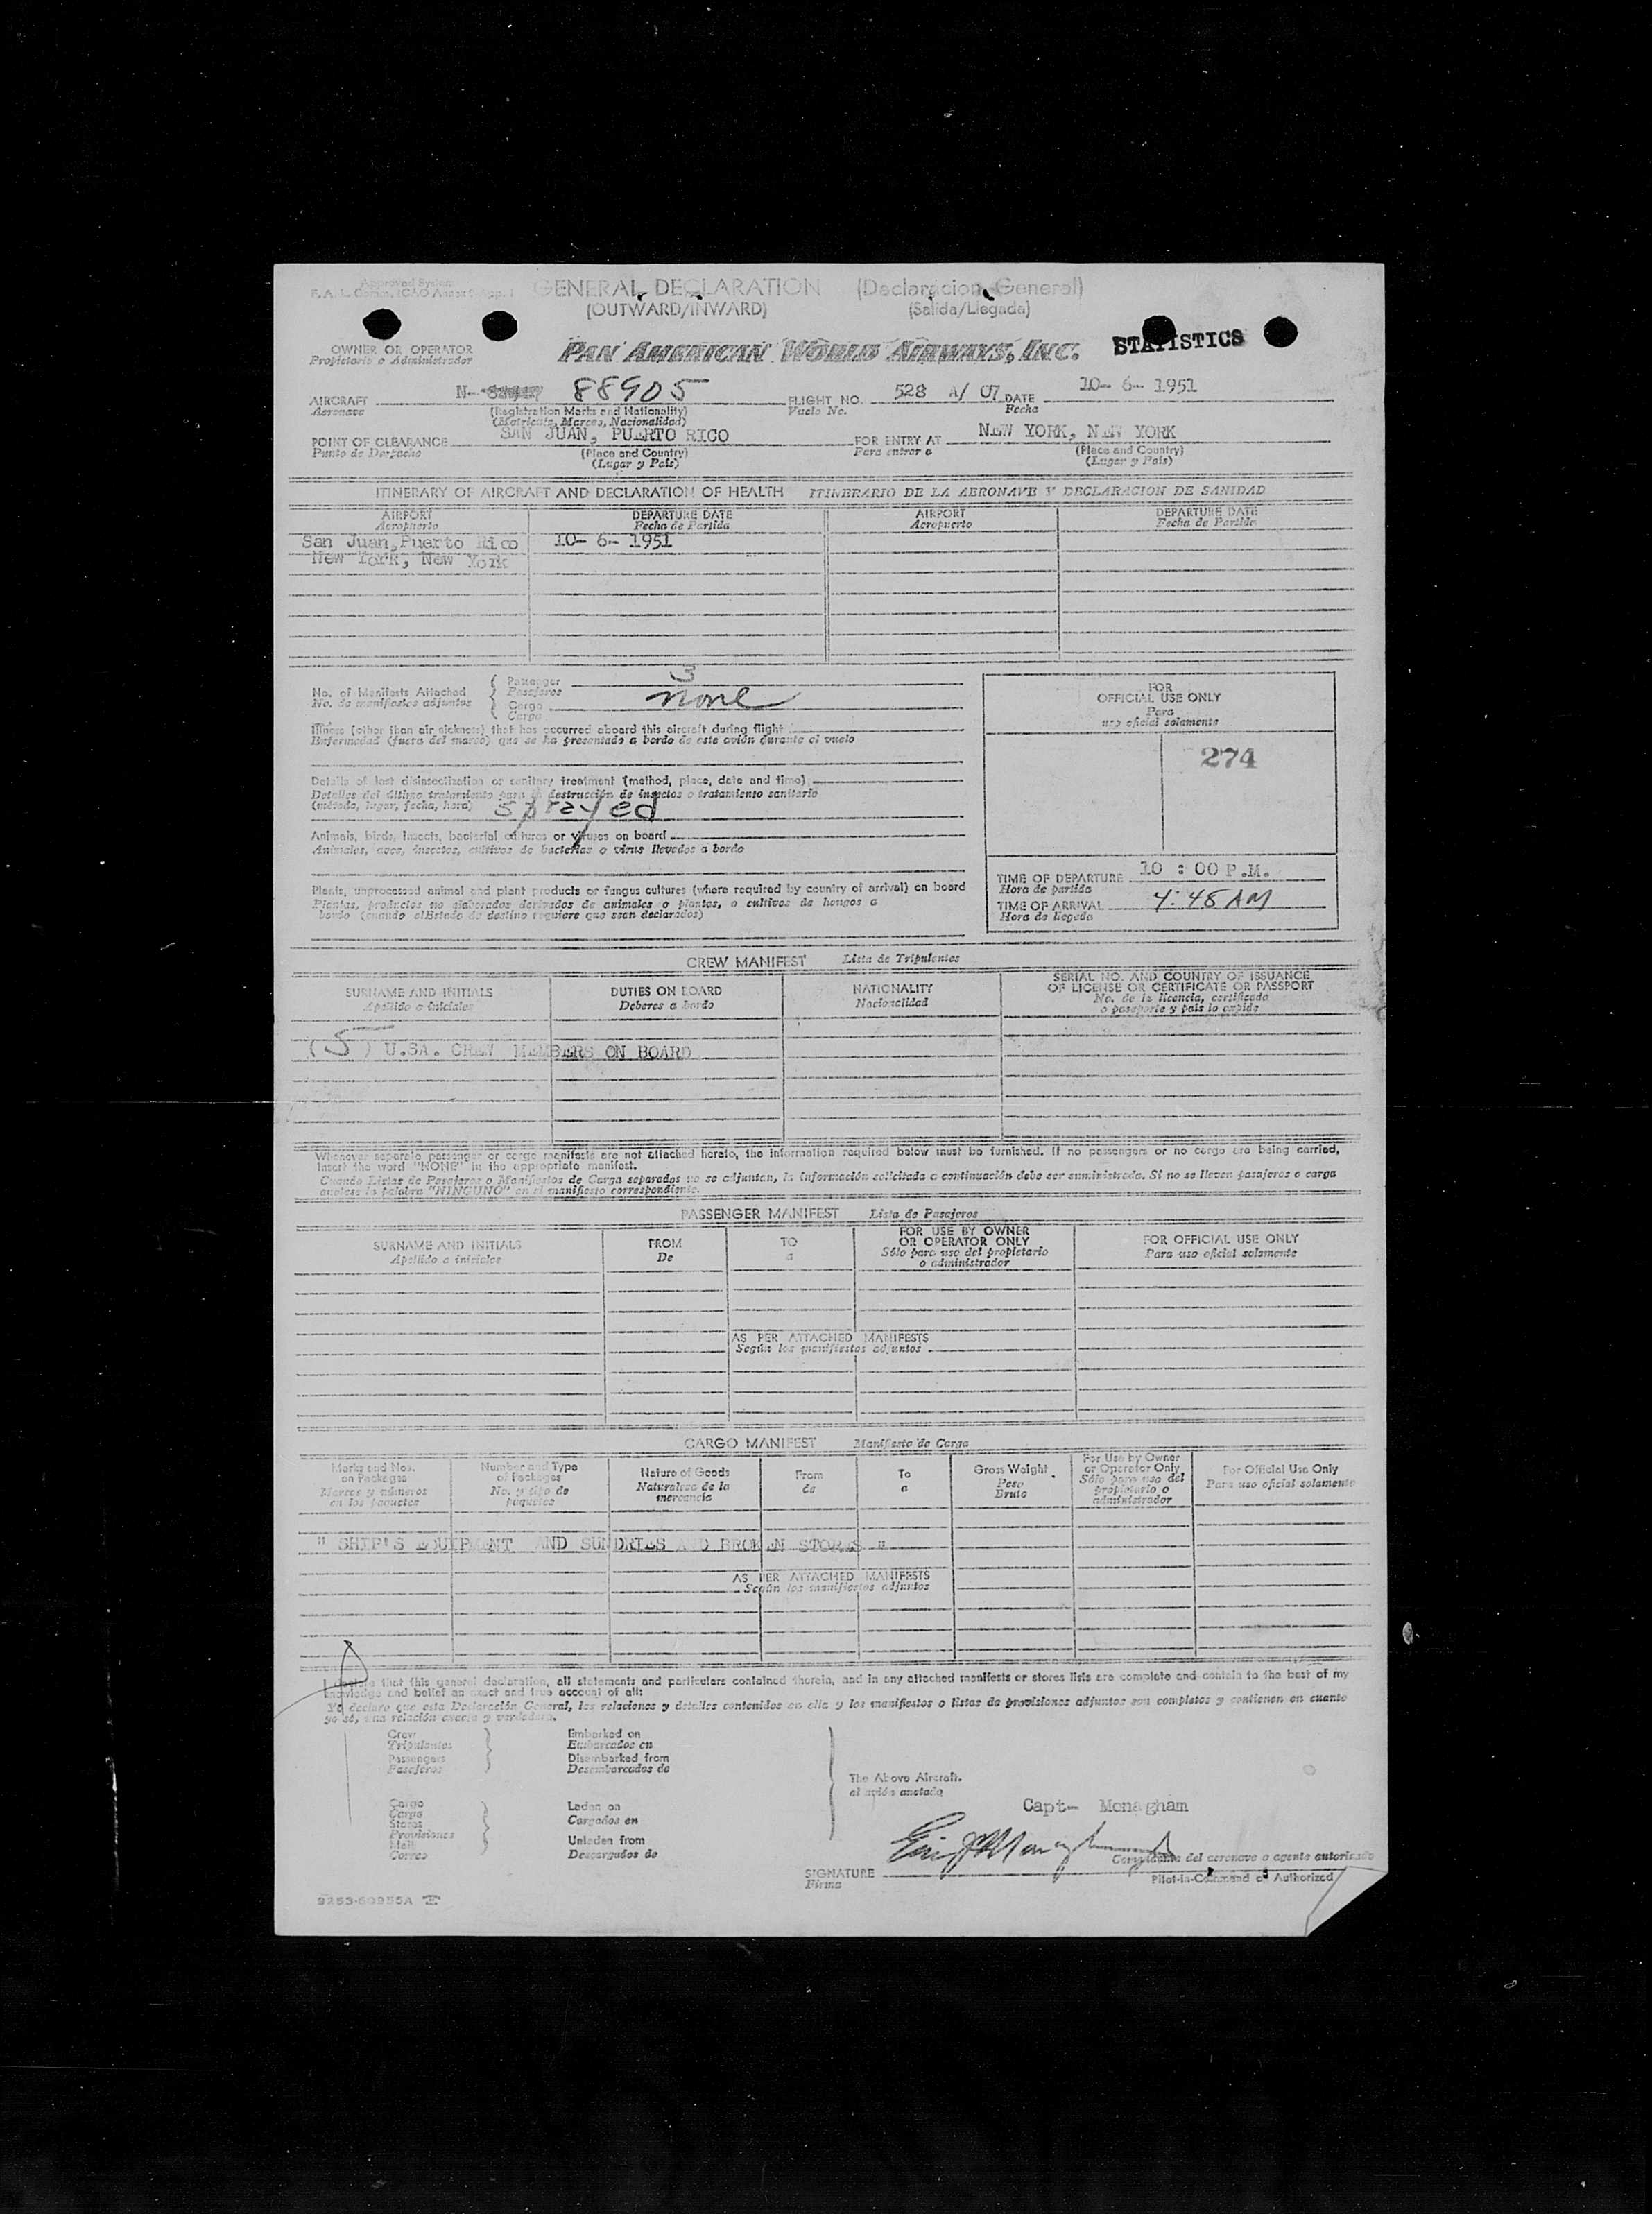 Approved System
F. A. L. Comm. ICAO Annex 9 App. 1
GENERAL DECLARATION (Declaracion General)
(OUTWARD/INWARD) (Salida/Llegada)
OWNER OR OPERATOR
Propietario o Administrador
PAN AMERICAN WORLD AIRWAYS, INC.
STATISTICS
AIRCRAFT N- 88905 FLIGHT NO. 528 A/ 07 DATE 10- 6- 1951
Aeronave (Registration Marks and Nationality) Vuelo No. Fecha
(Matricula, Marcas, Nacionalidad)
POINT OF CLEARANCE SAN JUAN, PUERTO RICO FOR ENTRY AT NEW YORK, NEW YORK
Punto de Despacho (Place and Country) Para entrar a (Place and Country)
(Lugar y País) (Lugar y País)
ITINERARY OF AIRCRAFT AND DECLARATION OF HEALTH ITINERARIO DE LA AERONAVE Y DECLARACION DE SANIDAD
AIRPORT DEPARTURE DATE AIRPORT DEPARTURE DATE
Aeropuerto Fecha de Partida Aeropuerto Fecha de Partida
San Juan, Puerto Rico 10- 6- 1951
New York, New York
No. of Manifests Attached
No. de manifiestos adjuntos
Passenger 3
Pasajeros
Cargo none
Carga
Illness (other than air sickness) that has occurred aboard this aircraft during flight
Enfermedad (fuera del mareo) que se ha presentado a bordo de este avión durante el vuelo
Details of last disinsectization or sanitary treatment (method, place, date and time)
Detalles del último tratamiento para la destrucción de insectos o tratamiento sanitario
(método, lugar, fecha, hora) sprayed
Animals, birds, insects, bacterial cultures or viruses on board
Animales, aves, insectos, cultivos de bacterias o virus llevados a bordo
Plants, unprocessed animal and plant products or fungus cultures (where required by country of arrival) on board
Plantas, productos no elaborados derivados de animales o plantas, o cultivos de hongos a
bordo (cuando el Estado de destino requiere que sean declarados)
FOR
OFFICIAL USE ONLY
Para
uso oficial solamente
274
TIME OF DEPARTURE 10 : 00 P.M.
Hora de partida
TIME OF ARRIVAL 4:48 AM
Hora de llegada
CREW MANIFEST Lista de Tripulantes
SURNAME AND INITIALS DUTIES ON BOARD NATIONALITY SERIAL NO. AND COUNTRY OF ISSUANCE
OF LICENSE OR CERTIFICATE OR PASSPORT
Apellido e iniciales Deberes a bordo Nacionalidad No. de la licencia, certificado
o pasaporte y país lo expide
(5) U.SA. CREW MEMBERS ON BOARD
Whenever separate passenger or cargo manifests are not attached hereto, the information required below must be furnished. If no passengers or no cargo are being carried,
insert the word "NONE" in the appropriate manifest.
Cuando Listas de Pasajeros o Manifiestos de Carga separados no se adjuntan, la información solicitada a continuación debe ser suministrada. Si no se lleven pasajeros o carga
anótese la palabra "NINGUNO" en el manifiesto correspondiente.
PASSENGER MANIFEST Lista de Pasajeros
SURNAME AND INITIALS FROM TO FOR USE BY OWNER
OR OPERATOR ONLY FOR OFFICIAL USE ONLY
Apellido e iniciales De a Sólo para uso del propietario
o administrador Para uso oficial solamente
AS PER ATTACHED MANIFESTS
Según los manifiestos adjuntos
CARGO MANIFEST Manifiesto de Carga
Marks and Nos.
on Packages
Marcas y números
en los paquetes
Number and Type
of Packages
No. y tipo de
paquetes
Nature of Goods
Naturaleza de la
mercancía
From
de
To
a
Gross Weight
Peso
Bruto
For Use by Owner
or Operator Only
Sólo para uso del
propietario o
administrador
For Official Use Only
Para uso oficial solamente
" SHIP'S EQUIPMENT AND SUNDRIES AND BROKEN STORES "
AS PER ATTACHED MANIFESTS
Según los manifiestos adjuntos
I declare that this general declaration, all statements and particulars contained therein, and in any attached manifests or stores lists are complete and contain to the best of my
knowledge and belief an exact and true account of all:
Yo declaro que esta Declaración General, las relaciones y detalles contenidos en ella y los manifiestos o listas de provisiones adjuntos son completos y contienen en cuanto
yo sé, una relación exacta y verdadera.
Crew
Tripulantes
Passengers
Pasajeros
Embarked on
Embarcados en
Disembarked from
Desembarcados de
Cargo
Carga
Stores
Provisiones
Mail
Correo
Laden on
Cargados en
Unladen from
Descargados de
The Above Aircraft.
el avión anotado
Capt- Monagham
SIGNATURE
Firma
del aeronave o agente autorizado
Pilot-in-Command or Authorized
9253-60955A